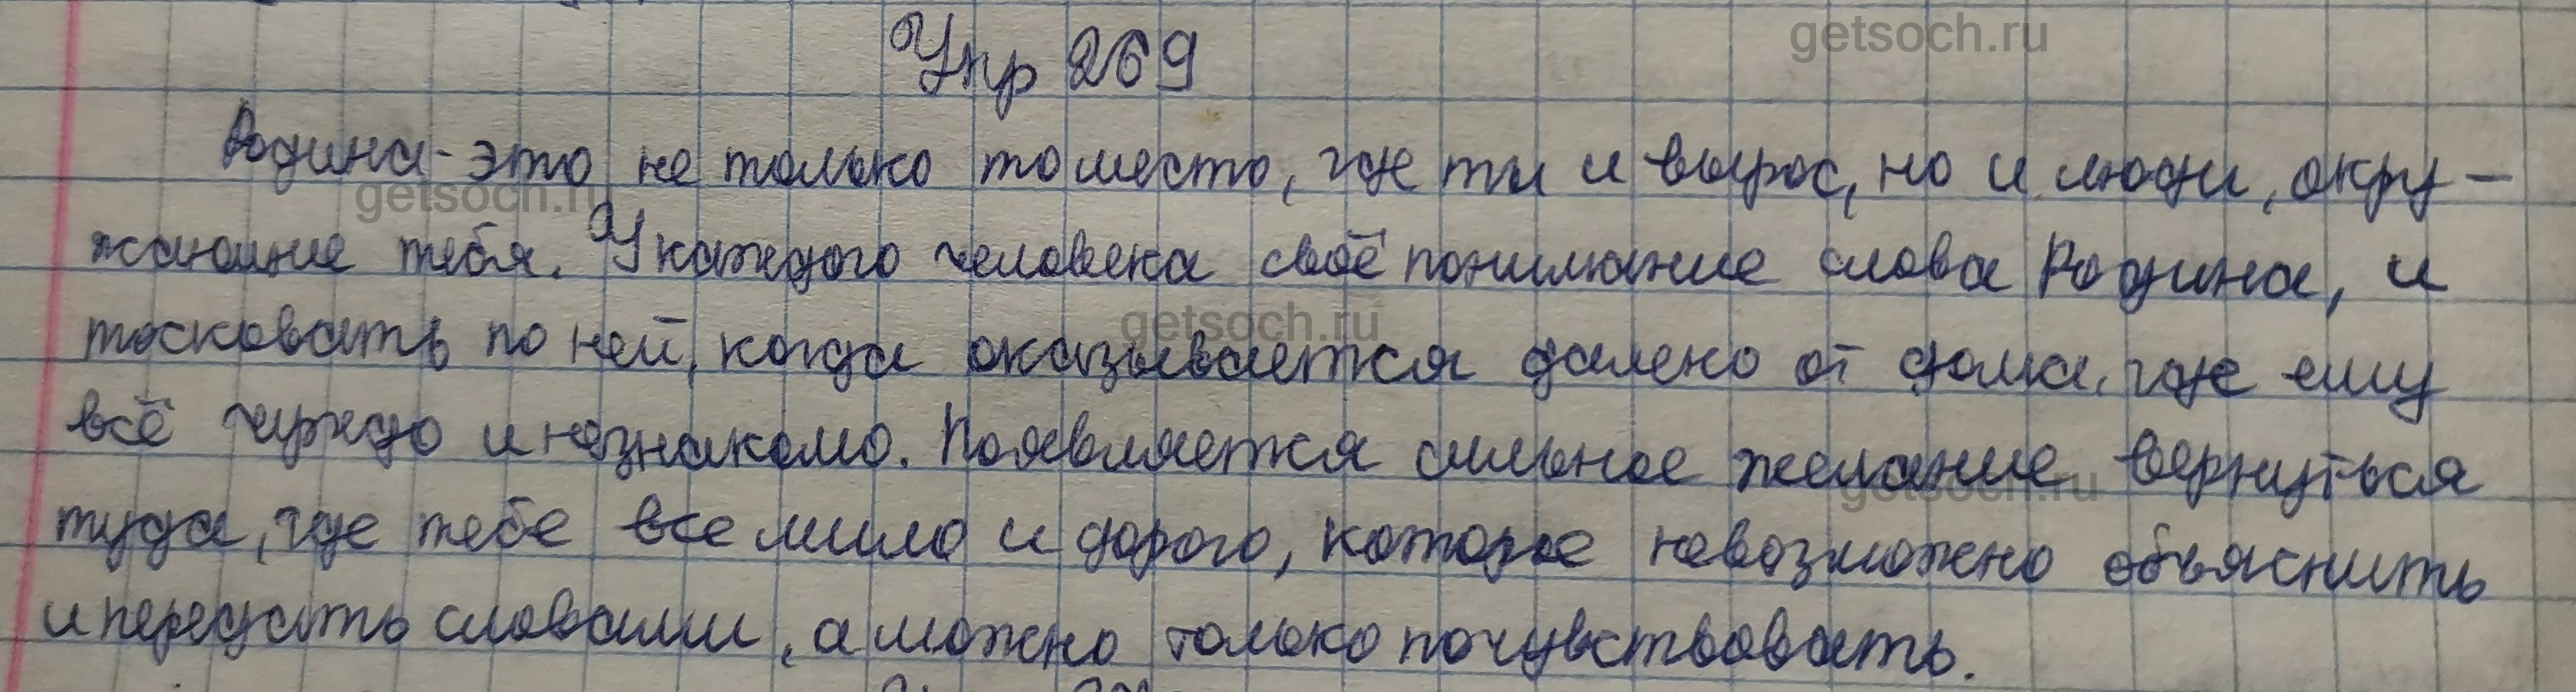 Упр 269
Родина - это не только то место, где ты и вырос, но и люди, окру-
жающие тебя. У каждого человека своё понимание слова Родина, и
тосковать по ней, когда оказывается далеко от дома, где ему
всё чуждо и незнакомо. Появляется сильное желание вернуться
туда, где тебе все мило и дорого, которое невозможно объяснить
и передать словами, а можно только почувствовать.
getsoch.ru
getsoch.ru
getsoch.ru
getsoch.ru